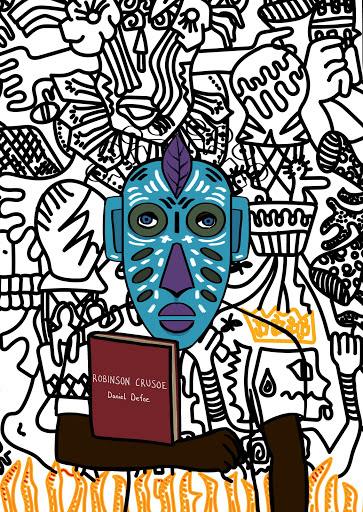 ROBINSON CRUSOE
Daniel Defoe